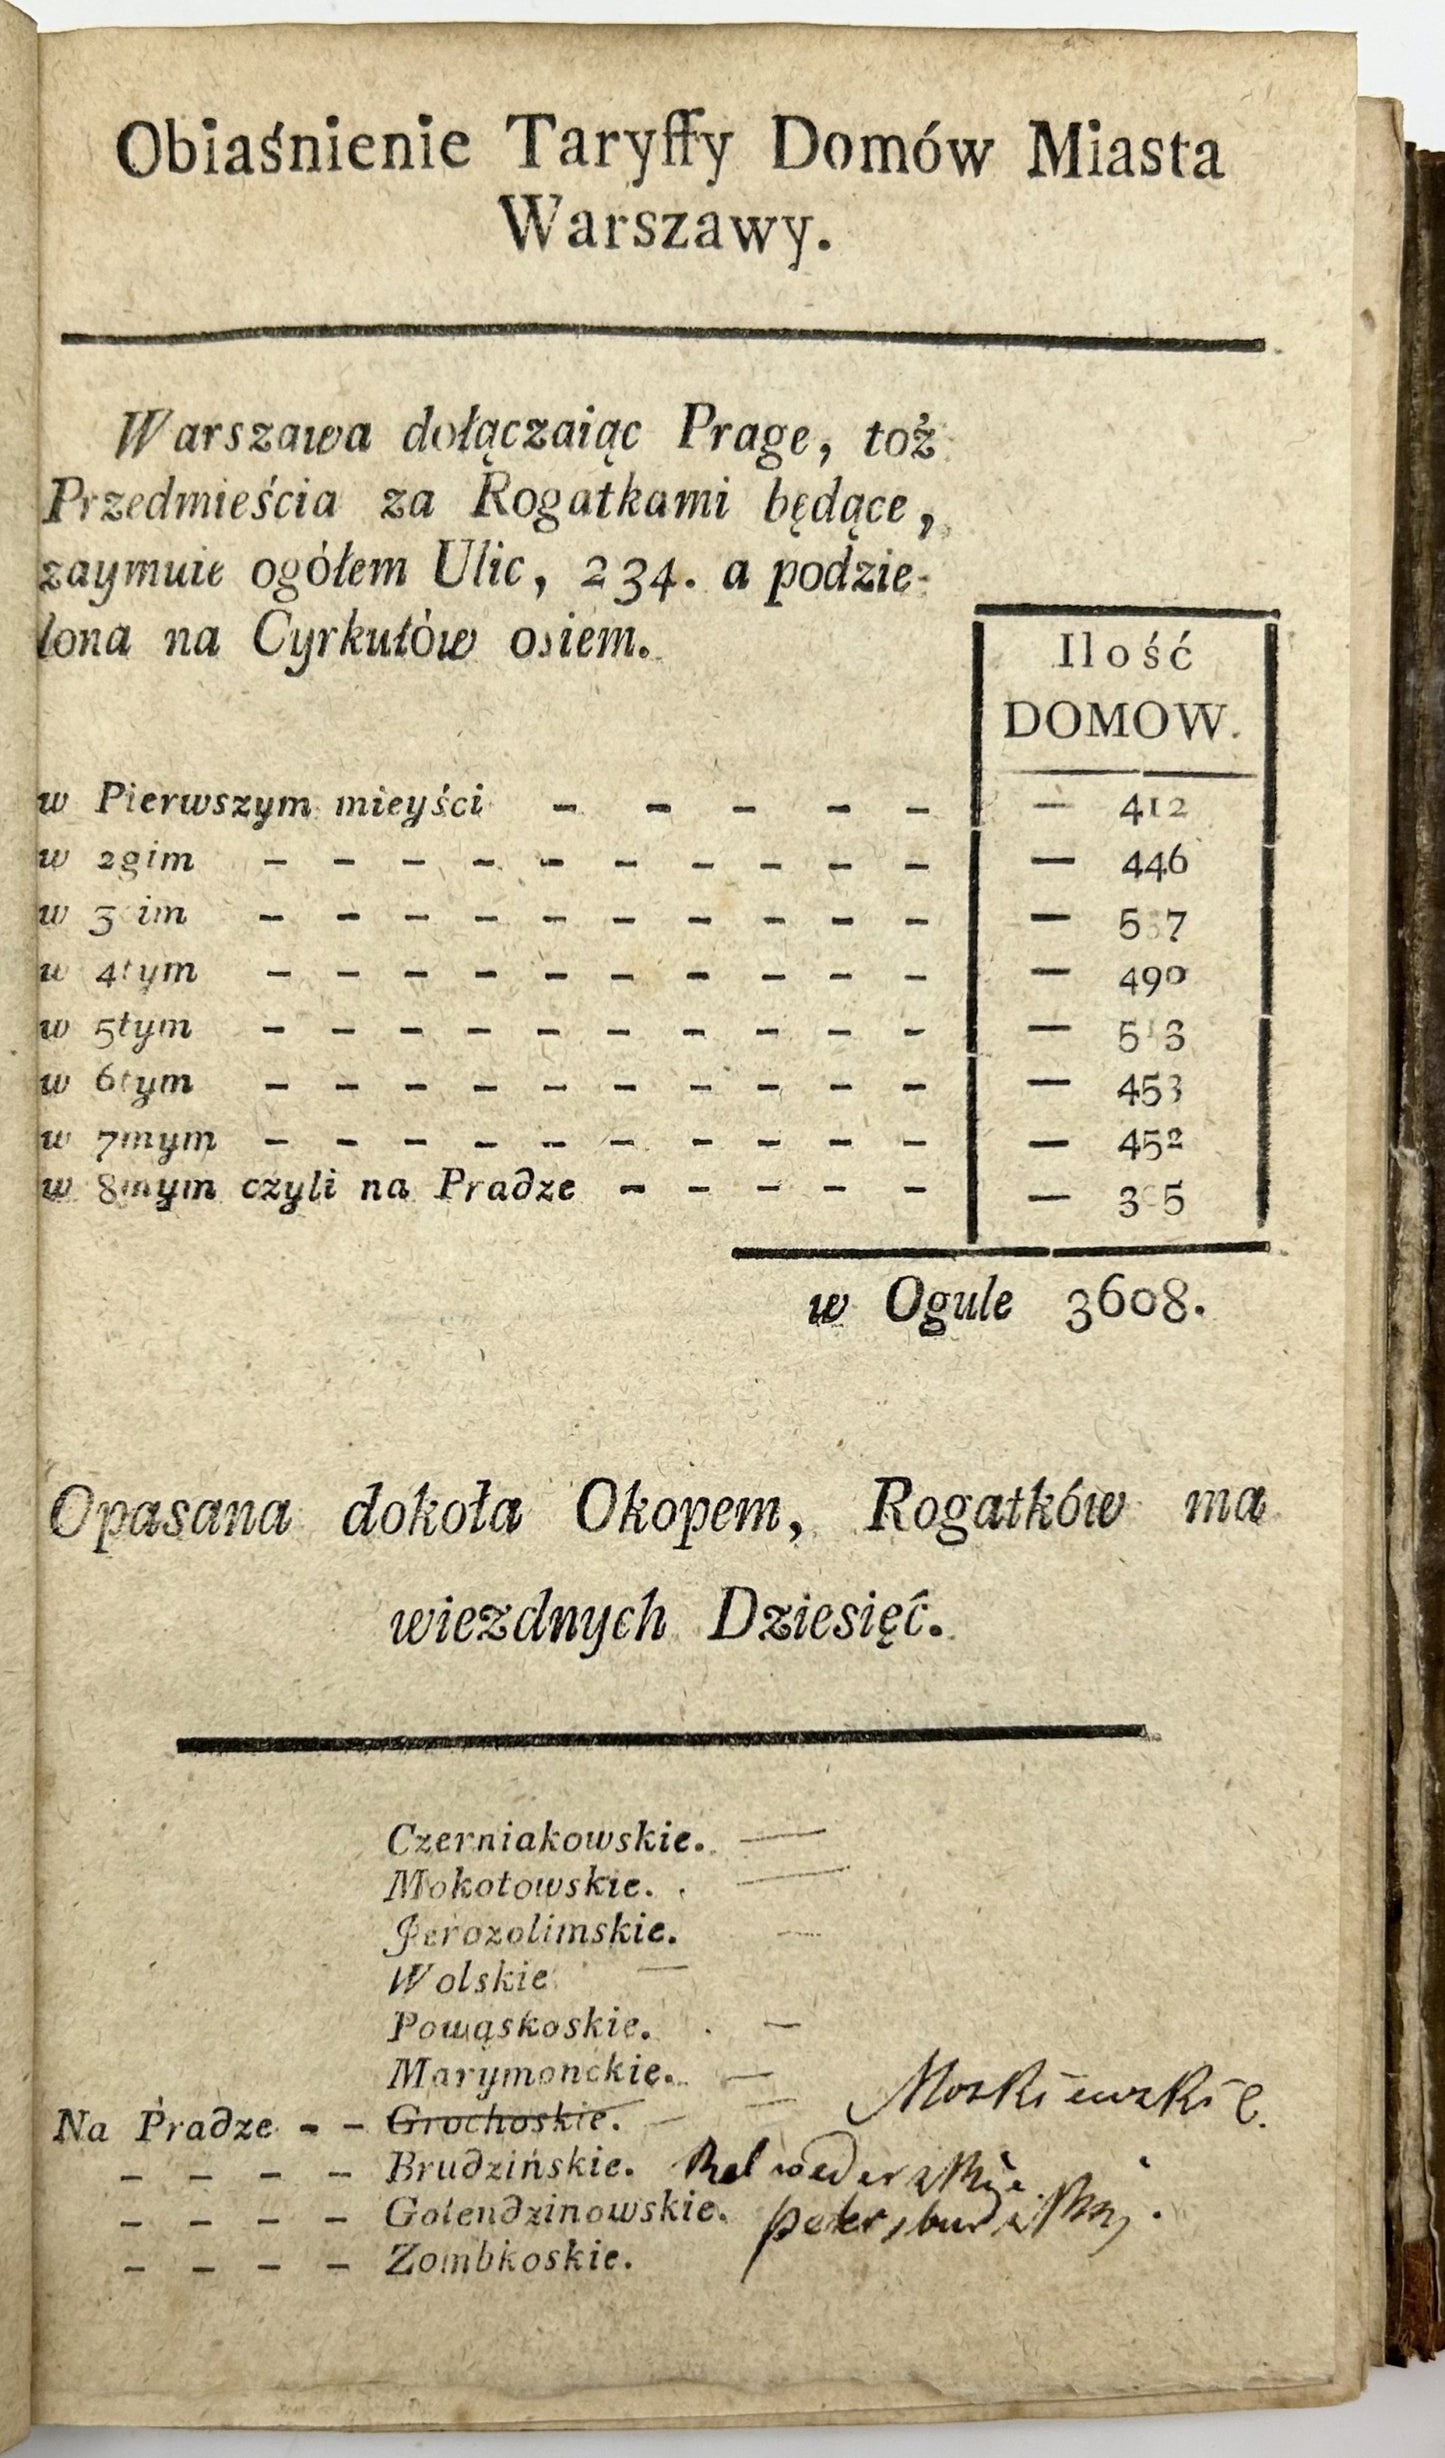 Obiaśnienie Taryffy Domów Miasta
Warszawy.
Warszawa dołączaiąc Prage, toż
Przedmieścia za Rogatkami będące,
zaymuie ogółem Ulic, 234. a podzie-
lona na Cyrkułów osiem.
Ilość
DOMOW.
w Pierwszym mieyści - - - - - — 412
w 2gim - - - - - - - - - - — 446
w 3cim - - - - - - - - - - — 537
w 4tym - - - - - - - - - - — 490
w 5tym - - - - - - - - - - — 513
w 6tym - - - - - - - - - - — 453
w 7mym - - - - - - - - - - — 452
w 8mym czyli na Pradze - - - - - — 305
w Ogule 3608.
Opasana dokoła Okopem, Rogatków ma
wiezdnych Dziesięć.
Czerniakowskie. —
Mokotowskie. —
Jerozolimskie. —
Wolskie —
Powąskoskie. —
Marymonckie. —
Na Pradze - - Grochoskie. — — Moskiewskie.
- - - - Brudzińskie. Belwederskije
- - - - Golendzinowskie. petersburskij.
- - - - Zombkoskie.